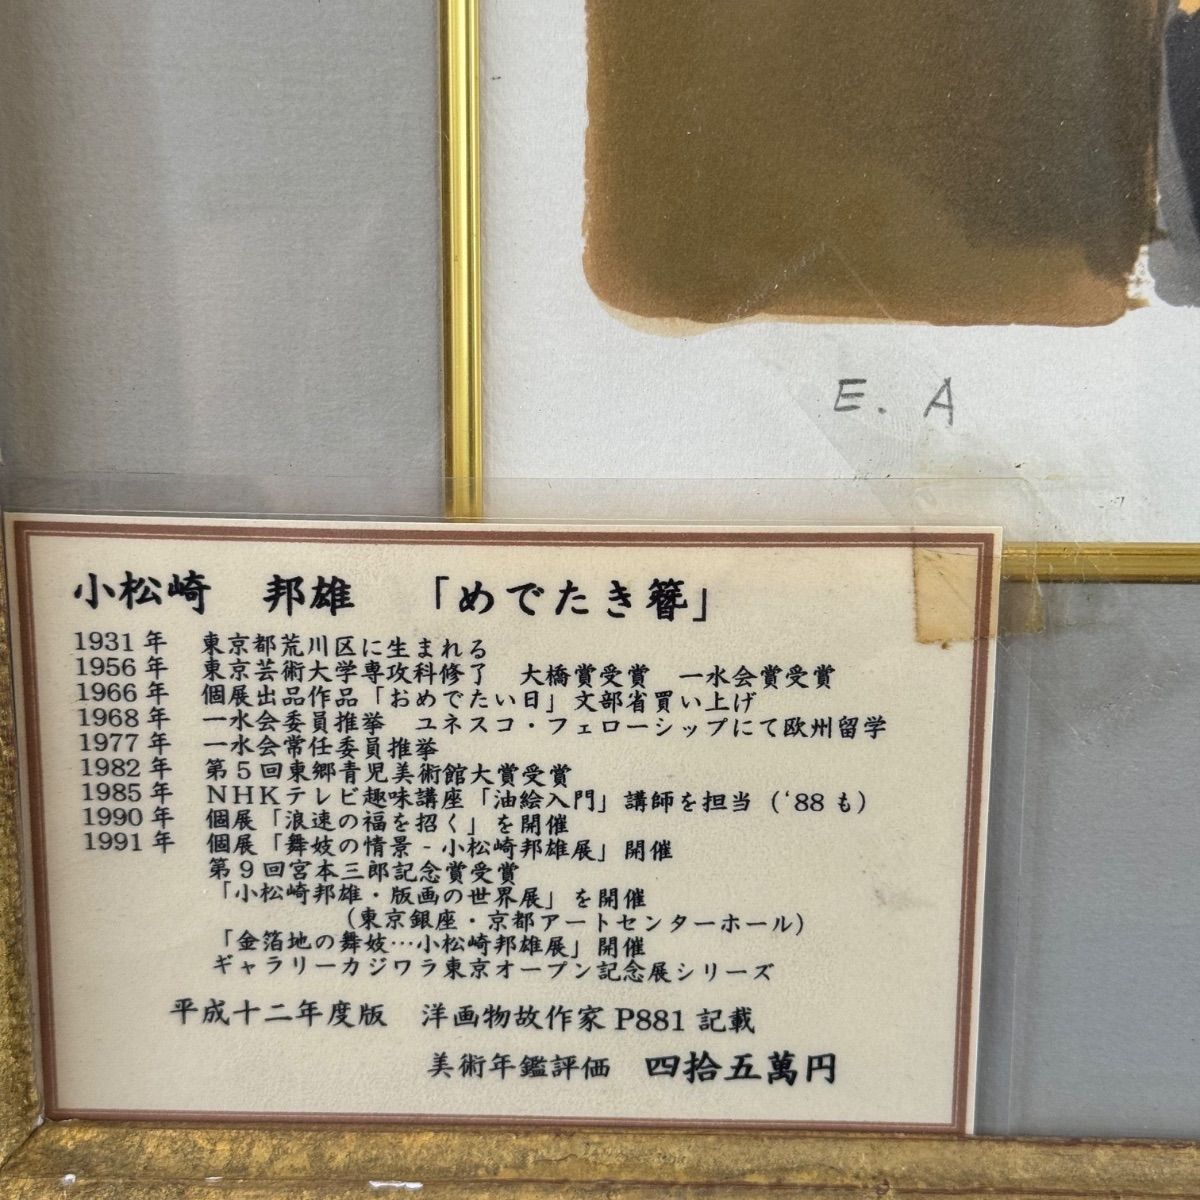 E. A
小松崎　邦雄　「めでたき簪」
1931年　東京都荒川区に生まれる
1956年　東京芸術大学専攻科修了　大橋賞受賞　一水会賞受賞
1966年　個展出品作品「おめでたい日」文部省買い上げ
1968年　一水会委員推挙　ユネスコ・フェローシップにて欧州留学
1977年　一水会常任委員推挙
1982年　第5回東郷青児美術館大賞受賞
1985年　NHKテレビ趣味講座「油絵入門」講師を担当（‘88も）
1990年　個展「浪速の福を招く」を開催
1991年　個展「舞妓の情景－小松崎邦雄展」開催
第9回宮本三郎記念賞受賞
「小松崎邦雄・版画の世界展」を開催
（東京銀座・京都アートセンターホール）
「金箔地の舞妓…小松崎邦雄展」開催
ギャラリーカジワラ東京オープン記念展シリーズ
平成十二年度版　洋画物故作家P881記載
美術年鑑評価　四拾五萬円